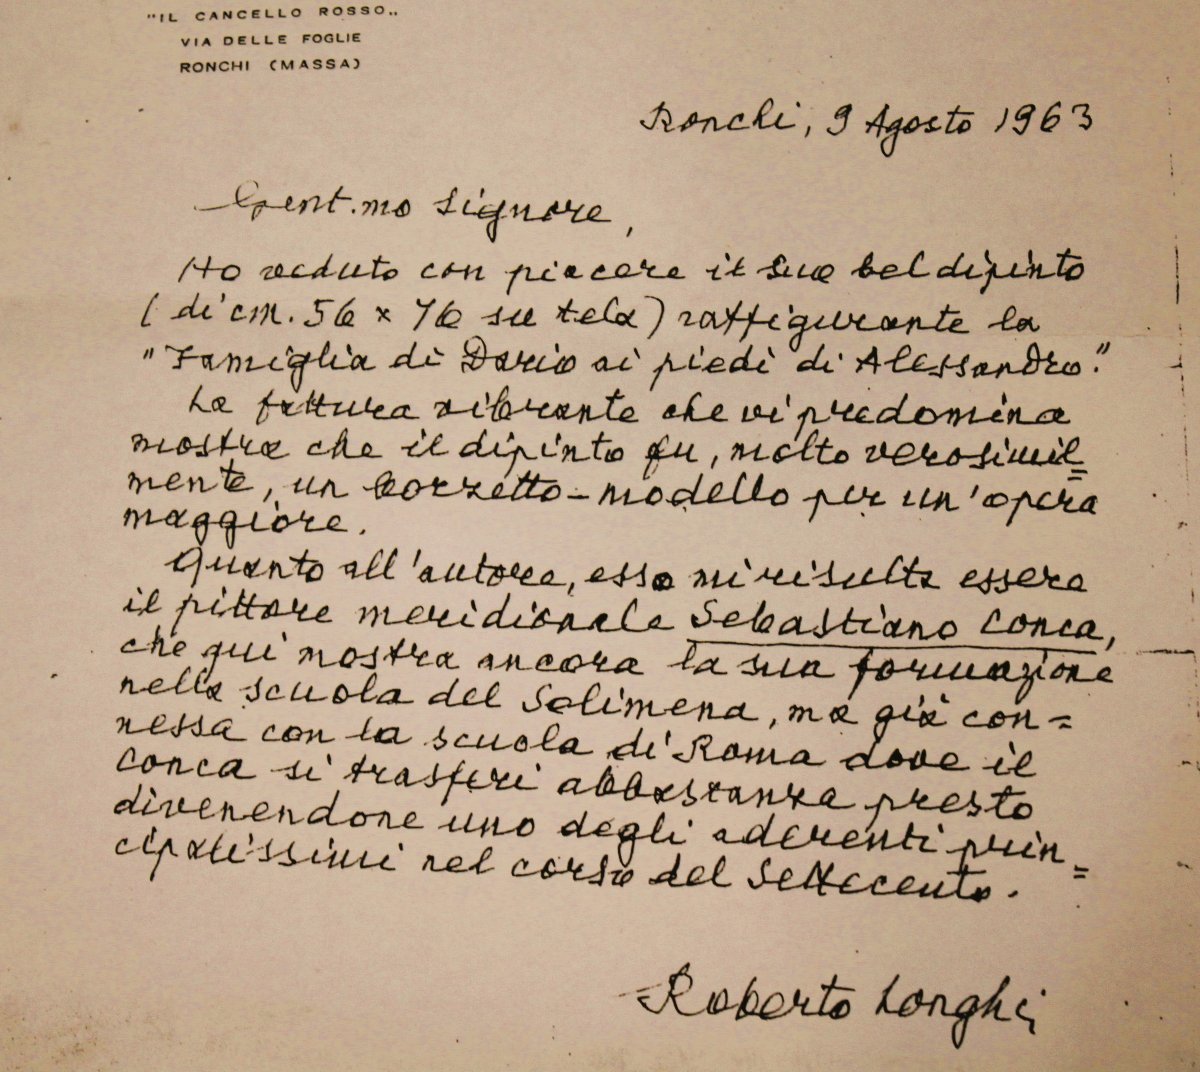 "IL CANCELLO ROSSO„
VIA DELLE FOGLIE
RONCHI (MASSA)
Ronchi, 9 Agosto 1963
Gent.mo Signore,
Ho veduto con piacere il suo bel dipinto
(di cm. 56 x 76 su tela) raffigurante la
"Famiglia di Dario ai piedi di Alessandro."
La fattura vibrante che vi predomina
mostra che il dipinto fu, molto verosimil=
mente, un bozzetto-modello per un'opera
maggiore.
Quanto all'autore, esso mi risulta essere
il pittore meridionale Sebastiano Conca,
che qui mostra ancora la sua formazione
nella scuola del Solimena, ma già con=
nessa con la scuola di Roma dove il
Conca si trasferì abbastanza presto
divenendone uno degli aderenti prin=
cipalissimi nel corso del Settecento.
Roberto Longhi